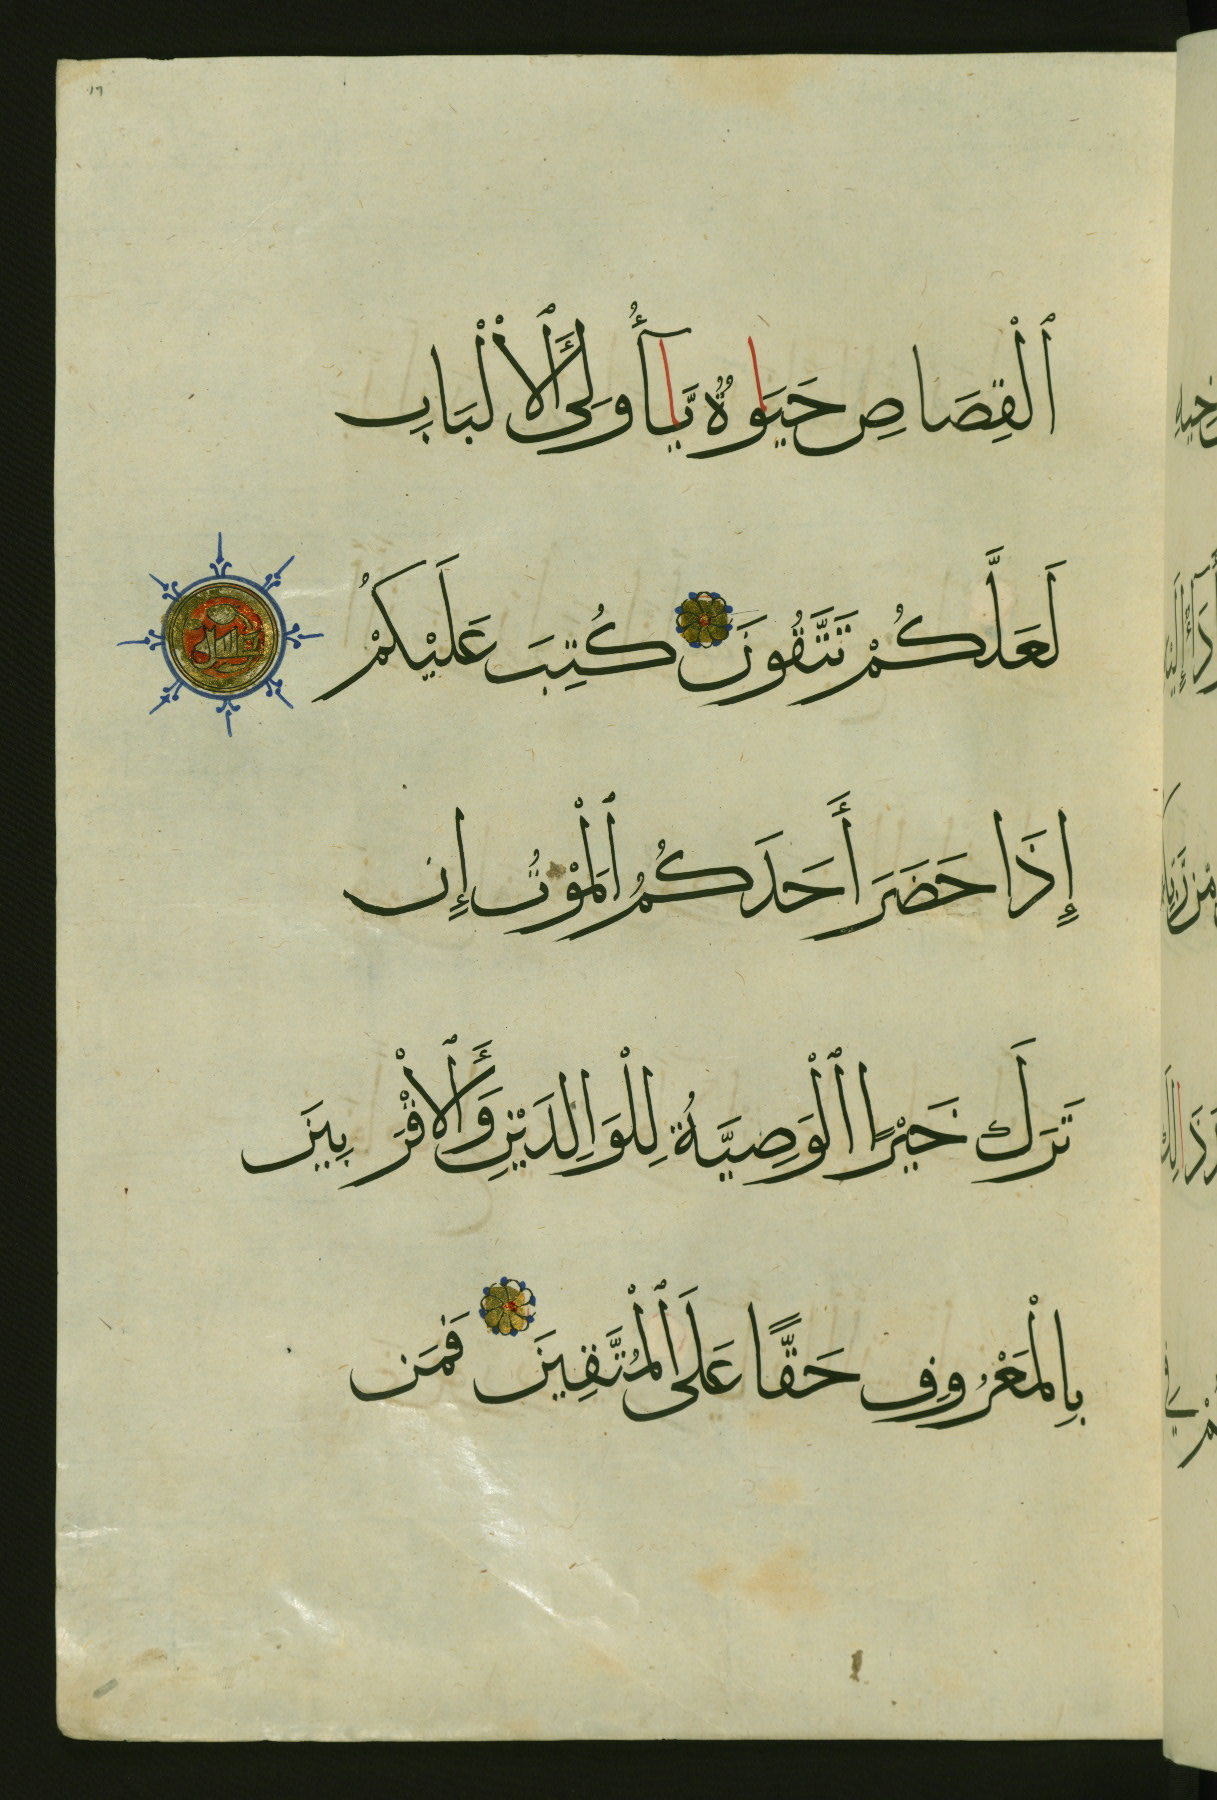 ٱلْقِصَاصِ حَيَوٰةٌ يَّآأُولِى ٱلْأَلْبَابِ
لَعَلَّكُمْ تَتَّقُونَ كُتِبَ عَلَيْكُمْ
إِذَا حَضَرَ أَحَدَكُمُ ٱلْمَوْتُ إِن
تَرَكَ خَيْرًا ٱلْوَصِيَّةُ لِلْوَالِدَيْنِ وَٱلْأَقْرَبِينَ
بِالْمَعْرُوفِ حَقًّا عَلَى ٱلْمُتَّقِينَ فَمَن